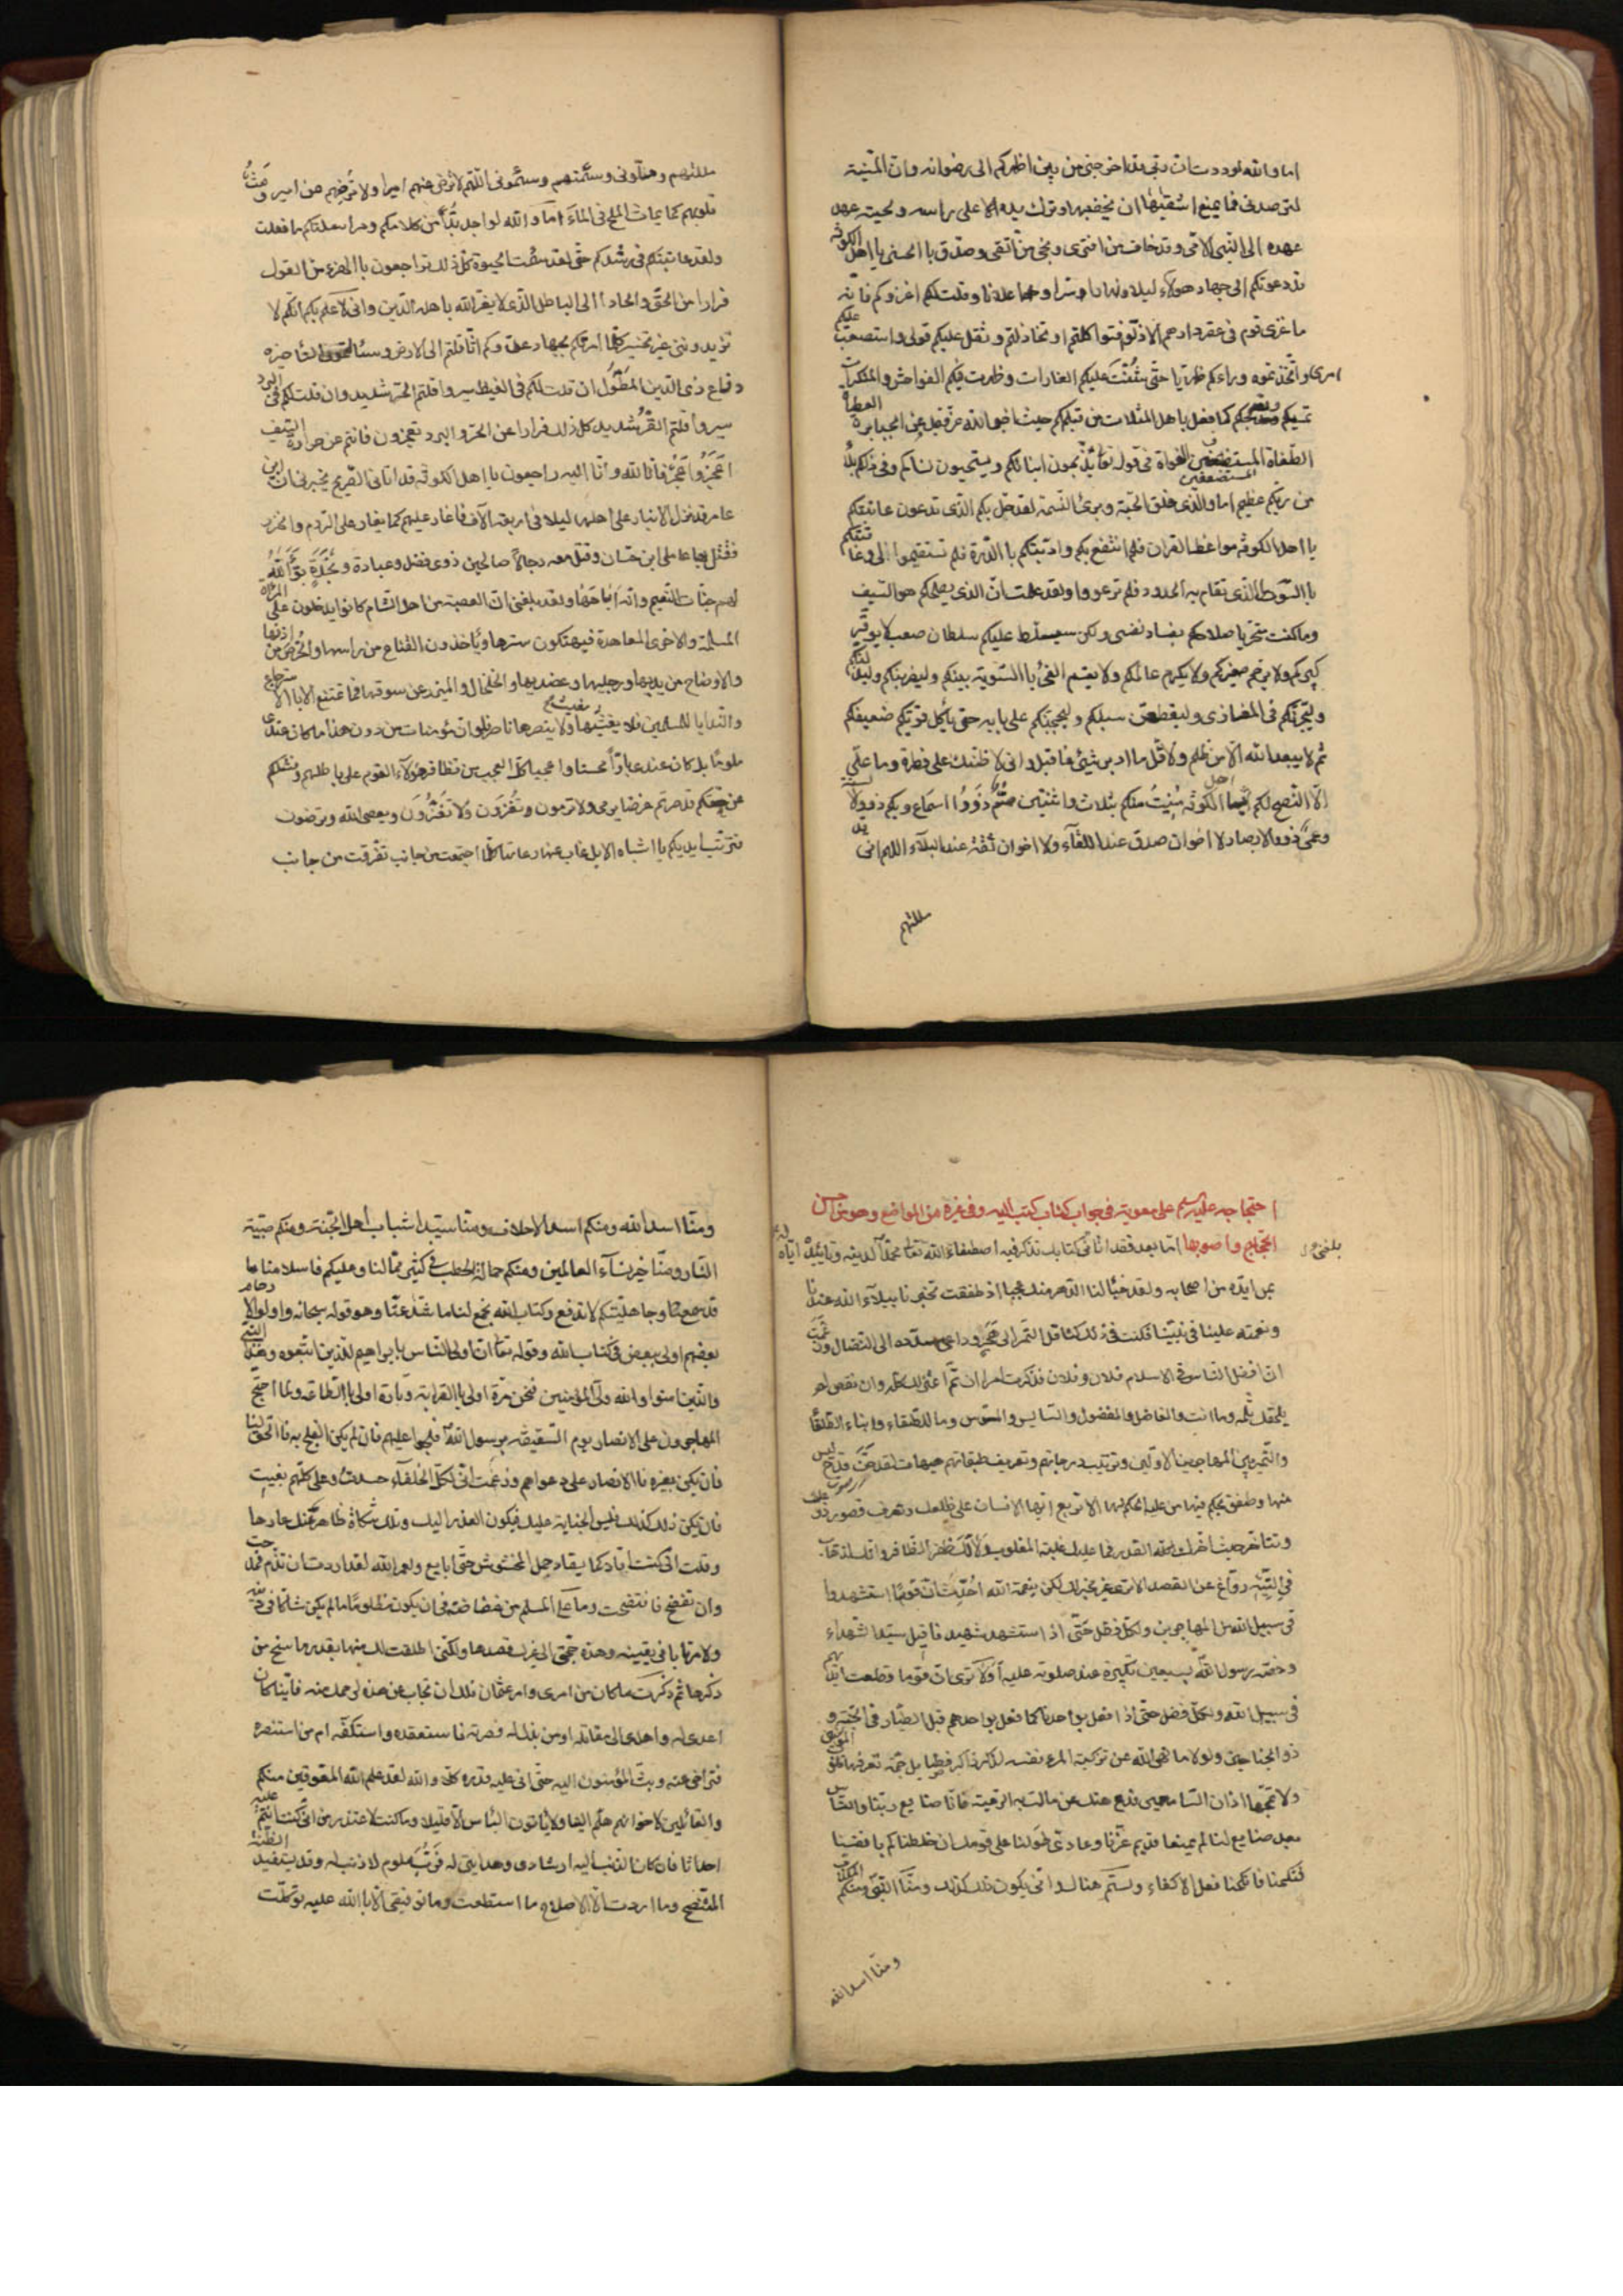 اما والله لوددت ان ربى قد اخرجنى من بين اظهركم الى رضوانه وان المنية
لترصدنى فما يمنع اشقيها ان يخضبها وترك يده الا على راسه ولحيته عهد
عهده الى النبى الامى وقد خاب من افترى ونجى من اتقى وصدق با الحسنى يا اهل الكوفه
قد دعوتكم الى جهاد هولاء ليلا ونهارا وسرا وعلانا وقلت لكم اغزوكم فانه
ما غزى قوم فى عقر دارهم الا ذلوا فتواكلتم او تخاذلتم وثقل عليكم قولى واستصعب عليكم
امرى واتخذتموه وراءكم ظهريا حتى شنت عليكم الغارات وظهرت فيكم الفواحش والمنكرات
تمسيكم وتصبحكم كما فعل باهل المثلات من قبلكم حيث اخبر الله عز وجل عن الجبابرة العطاه
الطغاة المستضعفين الغواة فى قوله تعالى يذبحون ابنائكم ويستحيون نسائكم وفى ذلكم بلاء
من ربكم عظيم اما والذى فلق الحبة وبرئ النسمة لقد حل بكم الذى توعدون عاتبتكم
يا اهل الكوفه مواعظ القران فلم انتفع بكم وادبتكم با الدرة فلم تستقيموا لى وعاقبتكم
با السوط الذى يقام به الحدود فلم ترعووا ولقد علمت ان الذى يصلحكم هو السيف
وما كنت متحريا صلاحكم بفساد نفسى ولكن سيسلط عليكم سلطان صعب لا يوقر
كبيركم ولا يرحم صغيركم ولا يكرم عالمكم ولا يقسم الفئ با السوية بينكم وليضربنكم وليذلنكم
وليجرنكم فى المغازى وليقطعن سبلكم وليحجبنكم على بابه حتى ياكل قويكم ضعيفكم
ثم لا يبعد الله الا من ظلم ولاقل ما ادبر شئ فاقبل وانى لاظنك على فطرة وما على
الا النصح لكم يا اهل الكوفه منيت منكم بثلاث واثنتين صم ذووا اسماع وبكم ذووا السنة
وعمى ذووا الابصار لا اخوان صدق عند اللقاء ولا اخوان ثقة عند البلاء اللهم انى قد
مللتهم
مللتهم وملونى وسئمتهم وسئمونى اللهم لا ترض عنهم اميرا ولا ترضهم عن امير ومث
قلوبهم كما يماث الملح فى الماء اما والله لو اجد بدا من كلامكم ومراسلتكم ما فعلت
ولقد عاتبتكم فى رشدكم حتى لقد سئمت الحيوة كل ذلك تراجعون با الهزء من القول
فرارا من الحق والحادا الى الباطل الذى لا يعز الله باهله الدين وانى لاعلم بكم انكم لا
تزيدوننى غير تخسير كلما امرتكم بجهاد عدوكم اثاقلتم الى الارض وسئالتمونى التاخيره
دفاع ذى الدين المطول ان قلت لكم فى القيظ سيروا قلتم الحر شديد وان قلت لكم فى البرد
سيروا قلتم القر شديد كل ذلك فرارا عن الحر والبرد تعجزون فانتم عن حرارة السيف
اعجز واعجز فانا لله وانا اليه راجعون يا اهل الكوفه قد اتانى الصريح يخبرنى ان ابن
عامر قد نزل الانبار على اهلها ليلا فى اربعة الاف فاغار عليهم كما يغار على الروم والخزر
فقتل بها عاملى ابن حسان وقتل معه رجالا صالحين ذوى فضل وعبادة ونجدة بوا الله
لهم جنات النعيم وانه اباحها ولقد بلغنى ان العصبة من اهل الشام كانوا يدخلون على المراة
المسلمة والاخرى المعاهدة فيهتكون سترها ويأخذون القناع من راسها والخرص من اذنها
والاوضاح من يديها ورجليها وعضديها والخلخال والميزر عن سوقها فما تمتنع الا با الاسترجاع
والندايا للمسلمين فلا يغيثها مغيث ولا ينصرها ناصر فلو ان مؤمنا مات من دون هذا ما كان عندى
ملوما بل كان عندى بارا محسنا واعجبا كل العجب من تظافر هؤلاء القوم على باطلهم وفشلكم
عن حقكم قد صرتم غرضا يرمى ولا ترمون وتغزون ولا تغزون ويعصى الله وترضون
فتربت ايديكم يا اشباه الابل غاب عنها رعاتها كلما اجتمعت من جانب تفرقت من جانب
احتجاجه عليه السلم على معوية فى جواب كتاب كتب اليه وفى غيره من المواضع وهو من احسن
الحجاج واصوبها اما بعد فقد اتانى كتابك تذكر فيه اصطفاء الله تعالى محمدا لدينه وتاييده اياه
بلغنى
بمن ايده من اصحابه ولقد خبا لنا الدهر منك عجبا اذ طفقت تخبرنا ببلاء الله عندنا
ونعمته علينا فى نبينا فكنت فى ذلك كناقل التمر الى هجر وداعى مسدده الى النضال وزعمت
ان افضل الناس فى الاسلام فلان وفلان فذكرت امرا ان تم اعتزلك كله وان نقص لم
يلحقك ثلمه وما انت والفاضل والمفضول والسايس والمسوس وما للطلقاء وابناء الطلقا
والتمييز بين المهاجرين الاولين وترتيب درجاتهم وتعريف طبقاتهم هيهات لقد حن قدح ليس
منها وطفق يحكم فيها من عليه الحكم لها الا تربع ايها الانسان على ظلعك وتعرف قصور ذرعك
وتتاخر حيث اخرك القدر فما عليك غلبة المغلوب ولا لك ظفر الظافر وانك لذهاب
فى التيه رواغ عن القصد الا ترى غير مخبر لك لكن بنعمة الله احدث ان قوما استشهدوا
فى سبيل الله من المهاجرين ولكل فضل حتى اذا استشهد شهيدنا قيل سيد الشهداء
وخصه رسول الله بسبعين تكبيرة عند صلوته عليه اولا ترى ان قوما قطعت ايديهم
فى سبيل الله ولكل فضل حتى اذا فعل بواحدنا كما فعل بواحدهم قيل الطيار فى الجنة و
ذو الجناحين ولولا ما نهى الله عن تزكية المرء نفسه لذكر ذاكر فضايل جمة تعرفها قلوب المؤمنين
ولا تمجها اذان السامعين فدع عنك من مالت به الرمية فانا صنايع ربنا والناس
بعد صنايع لنا لم يمنعنا قديم عزنا وعادى طولنا على قومك ان خلطناكم بانفسنا
فنكحنا وانكحنا فعل الاكفاء ولستم هناك وانى يكون ذلك كذلك ومنا النبى ومنكم المكذب
ومنا اسد الله
ومنا اسد الله ومنكم اسد الاحلاف ومنا سيدا شباب اهل الجنة ومنكم صبية
النار ومنا خير نساء العالمين ومنكم حمالة الحطب فى كثير مما لنا وعليكم فاسلامنا ما
قد سمع وجاهليتكم لا تدفع وكتاب الله يجمع لنا ما شذ عنا وهو قوله سبحانه واولوا الارحام
بعضهم اولى ببعض فى كتاب الله وقوله تعالى ان اولى الناس بابراهيم للذين اتبعوه وهذا النبى
والذين امنوا والله ولى المؤمنين فنحن مرة اولى با القرابة وتارة اولى با الطاعة ولما احتج
المهاجرون على الانصار يوم السقيفه برسول الله فلجوا عليهم فان لم يكن الفلج به فالحق لنا
فان يكن بغيره فا الانصار على دعواهم وزعمت انى لكل الخلفاء حسدت وعلى كلهم بغيت
فان يكن ذلك كذلك فليس الجناية عليك فيكون العذر اليك وتلك شكاة ظاهر عنك عارها
وقلت انى كنت اقاد كما يقاد جمل المخشوش حتى ابايع ولعمر الله لقد اردت ان تذم فمدحت
وان تفضح فافتضحت وما على المسلم من غضاضة فى ان يكون مظلوما ما لم يكن شاكا فى دينه
ولا مرتابا فى يقينه وهذه حجتى الى غيرك قصدها ولكنى اطلقت لك منها بقدر ما سنح من
ذكرها ثم ذكرت ما كان من امرى وامر عثمان فلك ان تجاب عن هذه لرحمك منه فاينا كان
اعدى له واهدى الى مقاتله اومن بذل له نصرته فاستقعده واستكفه ام من استنصره
فتراخى عنه وبث المنون اليه حتى اتى عليه قدره كلا والله لقد علم الله المعوقين منكم
والقائلين لاخوانهم هلم الينا ولا ياتون الباس الا قليلا وما كنت لاعتذر من انى كنت انقم عليه
احداثا فان كان الذنب اليه ارشادى وهدايتى له فرب ملوم لا ذنب له وقد يستفيد الظنة
المتنصح وما اردت الا الاصلاح ما استطعت وما توفيقى الا با الله عليه توكلت